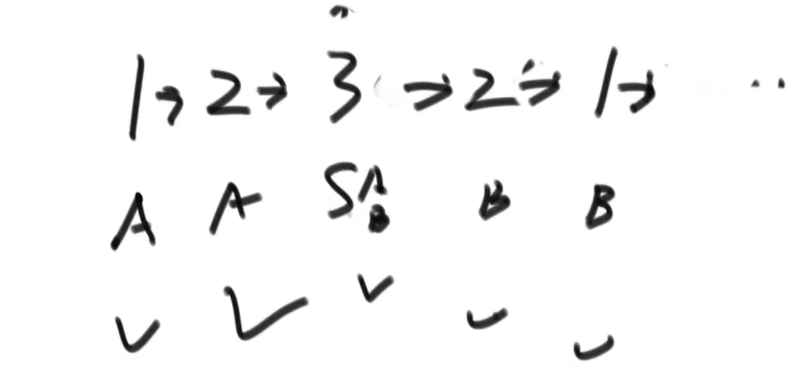 1→2→3→2→1→ ..
A A SAB B B
✓ ✓ ✓ ✓ ✓